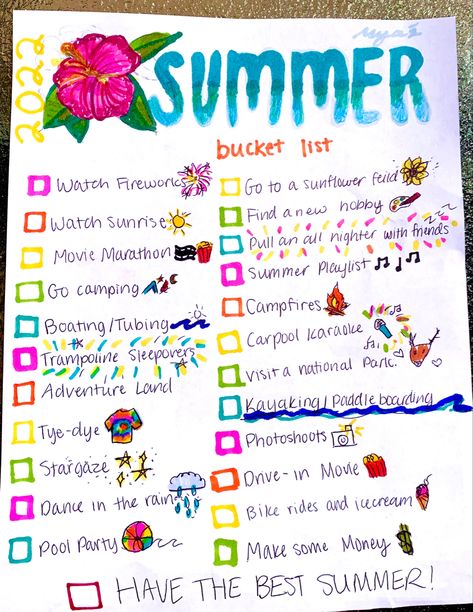 2022
Nya's
SUMMER
bucket list
Watch Fireworks
Watch Sunrise
Movie Marathon
Go camping
Boating/Tubing
Trampoline Sleepovers
Adventure Land
Tye-dye
Stargaze
Dance in the rain
Pool Party
Go to a sunflower feild
Find a new hobby
Pull an all nighter with friends
Summer Playlist
Campfires
Carpool Karaoke
Visit a national Park.
Kayaking/Paddle boarding
Photoshoots
Drive-in Movie
Bike rides and icecream
Make some Money
HAVE THE BEST SUMMER!